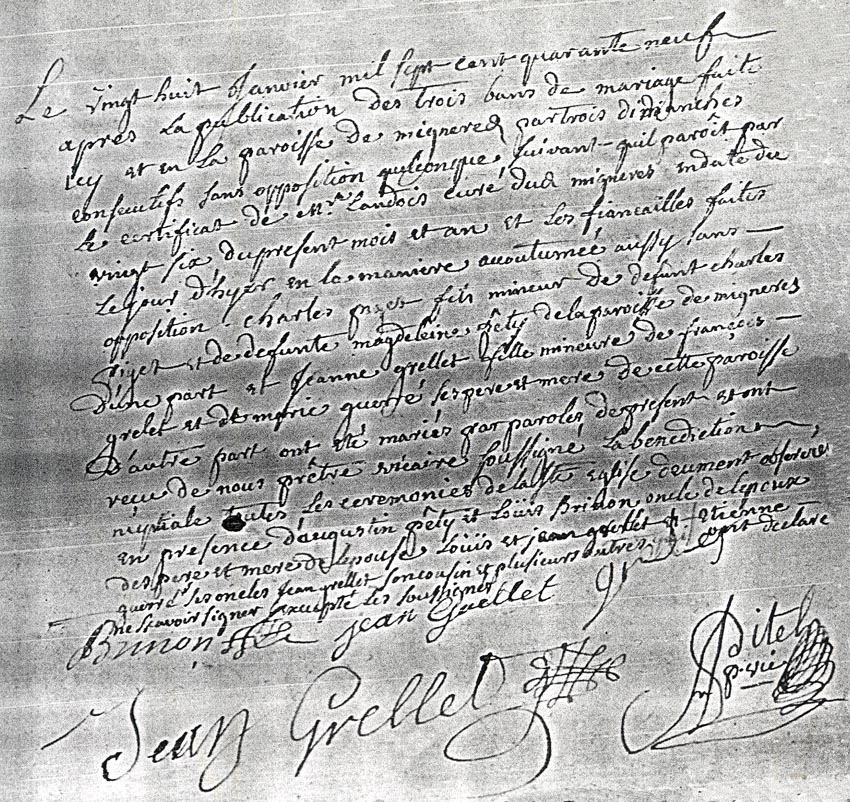 Le vingt huit Janvier mil sept cent quarante neuf
apres La publication des trois bans de mariage faite
icy et en La paroisse de migneres par trois dimanches
consecutifs sans opposition quelconque, suivant quil paroît par
Le certificat de Mr. Landois curé dud migneres en date du
vingt six du present mois et an et Les fiancailles faites
Le jour d'hyer en la maniere acoutumée aussy sans
opposition. charles piget fils mineur de defunt charles
Piget et de defunte magdeleine pêty de la paroisse de migneres
D'une part et Jeanne grellet fille mineure de françois
grelet et de marie guerré ses pere et mere de cette paroisse
D'autre part ont eté mariés par paroles de present et ont
reçu de nous prêtre vicaire soussigné La benediction
nuptiale toutes Les ceremonies de la Ste Eglise deument observées
en presence d'augustin pêty et Loüis Brinon oncle de lepoux
des pere et mere de Lepouse Loüis et jean grellet et Etienne
guerré ses oncles Jean grellet son cousin et plusieurs autres qui ont declaré
ne scavoir signer excepté les soussignés
Brinon jean Grellet
Jean Grellet
Ditel
p. vic